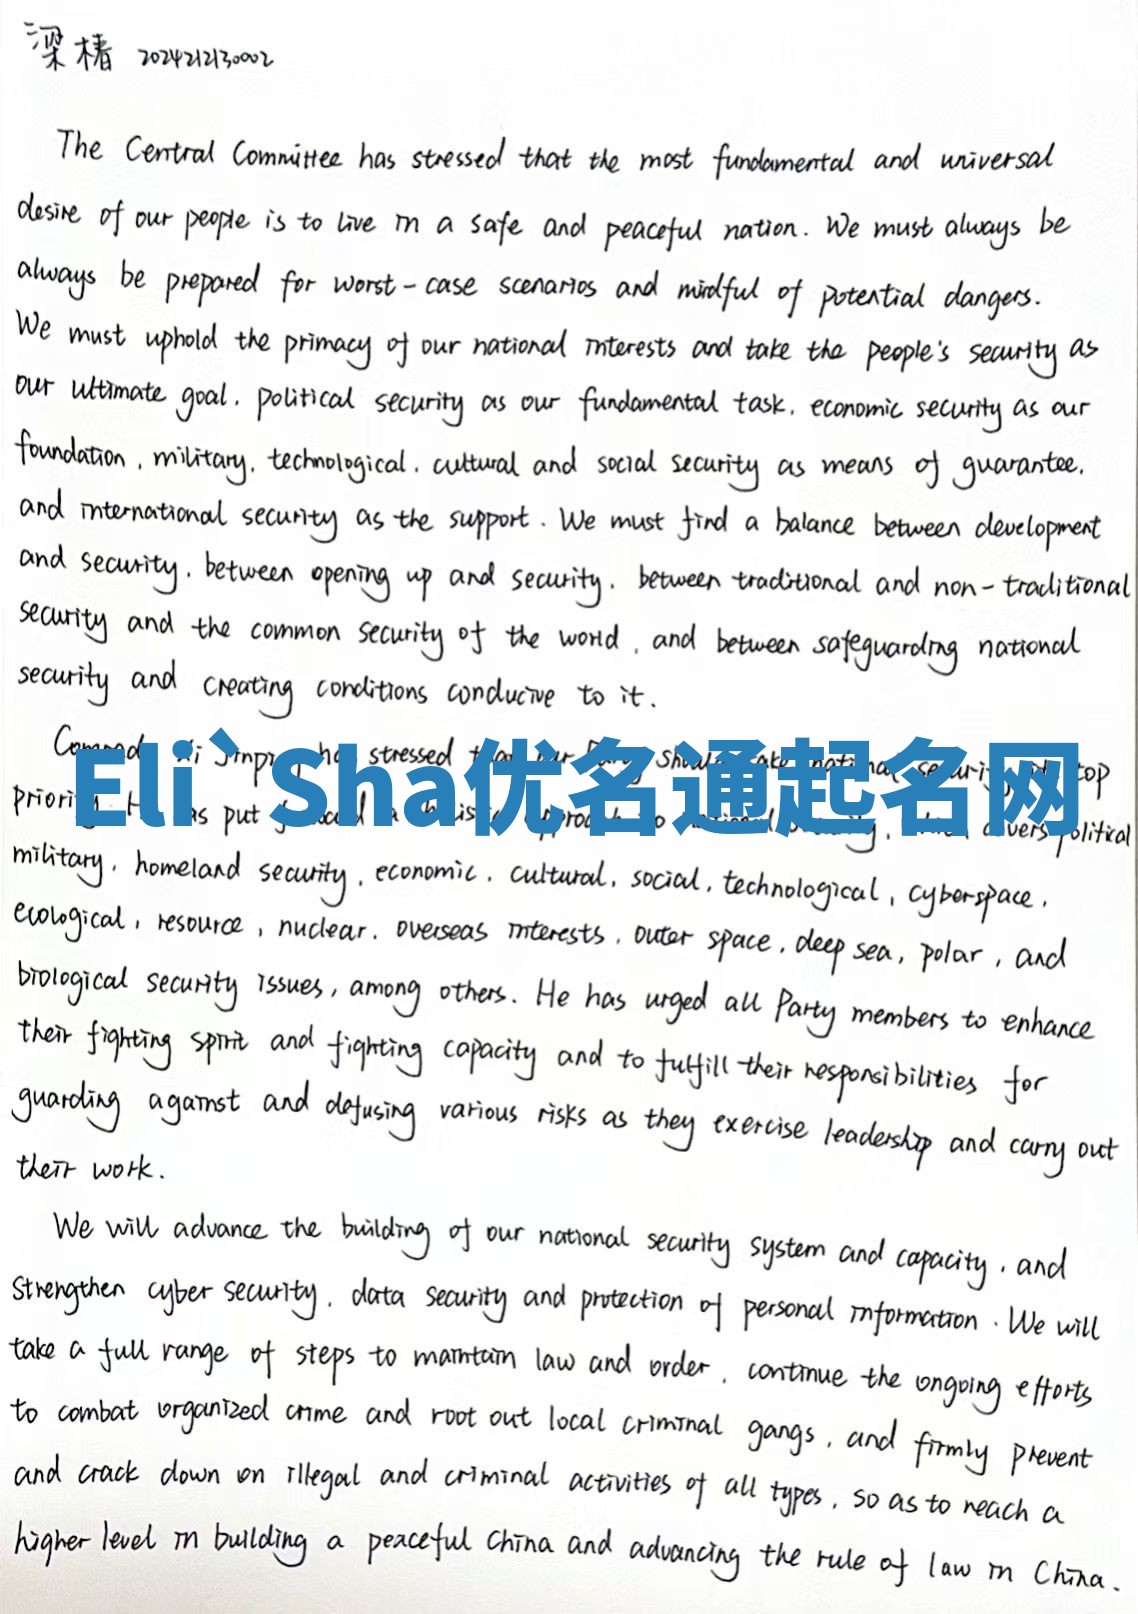 梁椿 2024212130002
The Central Committee has stressed that the most fundamental and universal
desire of our people is to live in a safe and peaceful nation. We must always be
always be prepared for worst-case scenarios and mindful of potential dangers.
We must uphold the primacy of our national interests and take the people's security as
our ultimate goal, political security as our fundamental task, economic security as our
foundation, military, technological, cultural and social security as means of guarantee,
and international security as the support. We must find a balance between development
and security, between opening up and security, between traditional and non-traditional
security and the common security of the world, and between safeguarding national
security and creating conditions conducive to it.
stressed
Eli`Sha优名通起名网
put political
military, homeland security, economic, cultural, social, technological, cyberspace,
ecological, resource, nuclear, overseas interests, outer space, deep sea, polar, and
biological security issues, among others. He has urged all Party members to enhance
their fighting spirit and fighting capacity and to fulfill their responsibilities for
guarding against and defusing various risks as they exercise leadership and carry out
their work.
We will advance the building of our national security system and capacity, and
strengthen cyber security, data security and protection of personal information. We will
take a full range of steps to maintain law and order, continue the ongoing efforts
to combat organized crime and root out local criminal gangs, and firmly prevent
and crack down on illegal and criminal activities of all types, so as to reach a
higher level in building a peaceful China and advancing the rule of law in China.